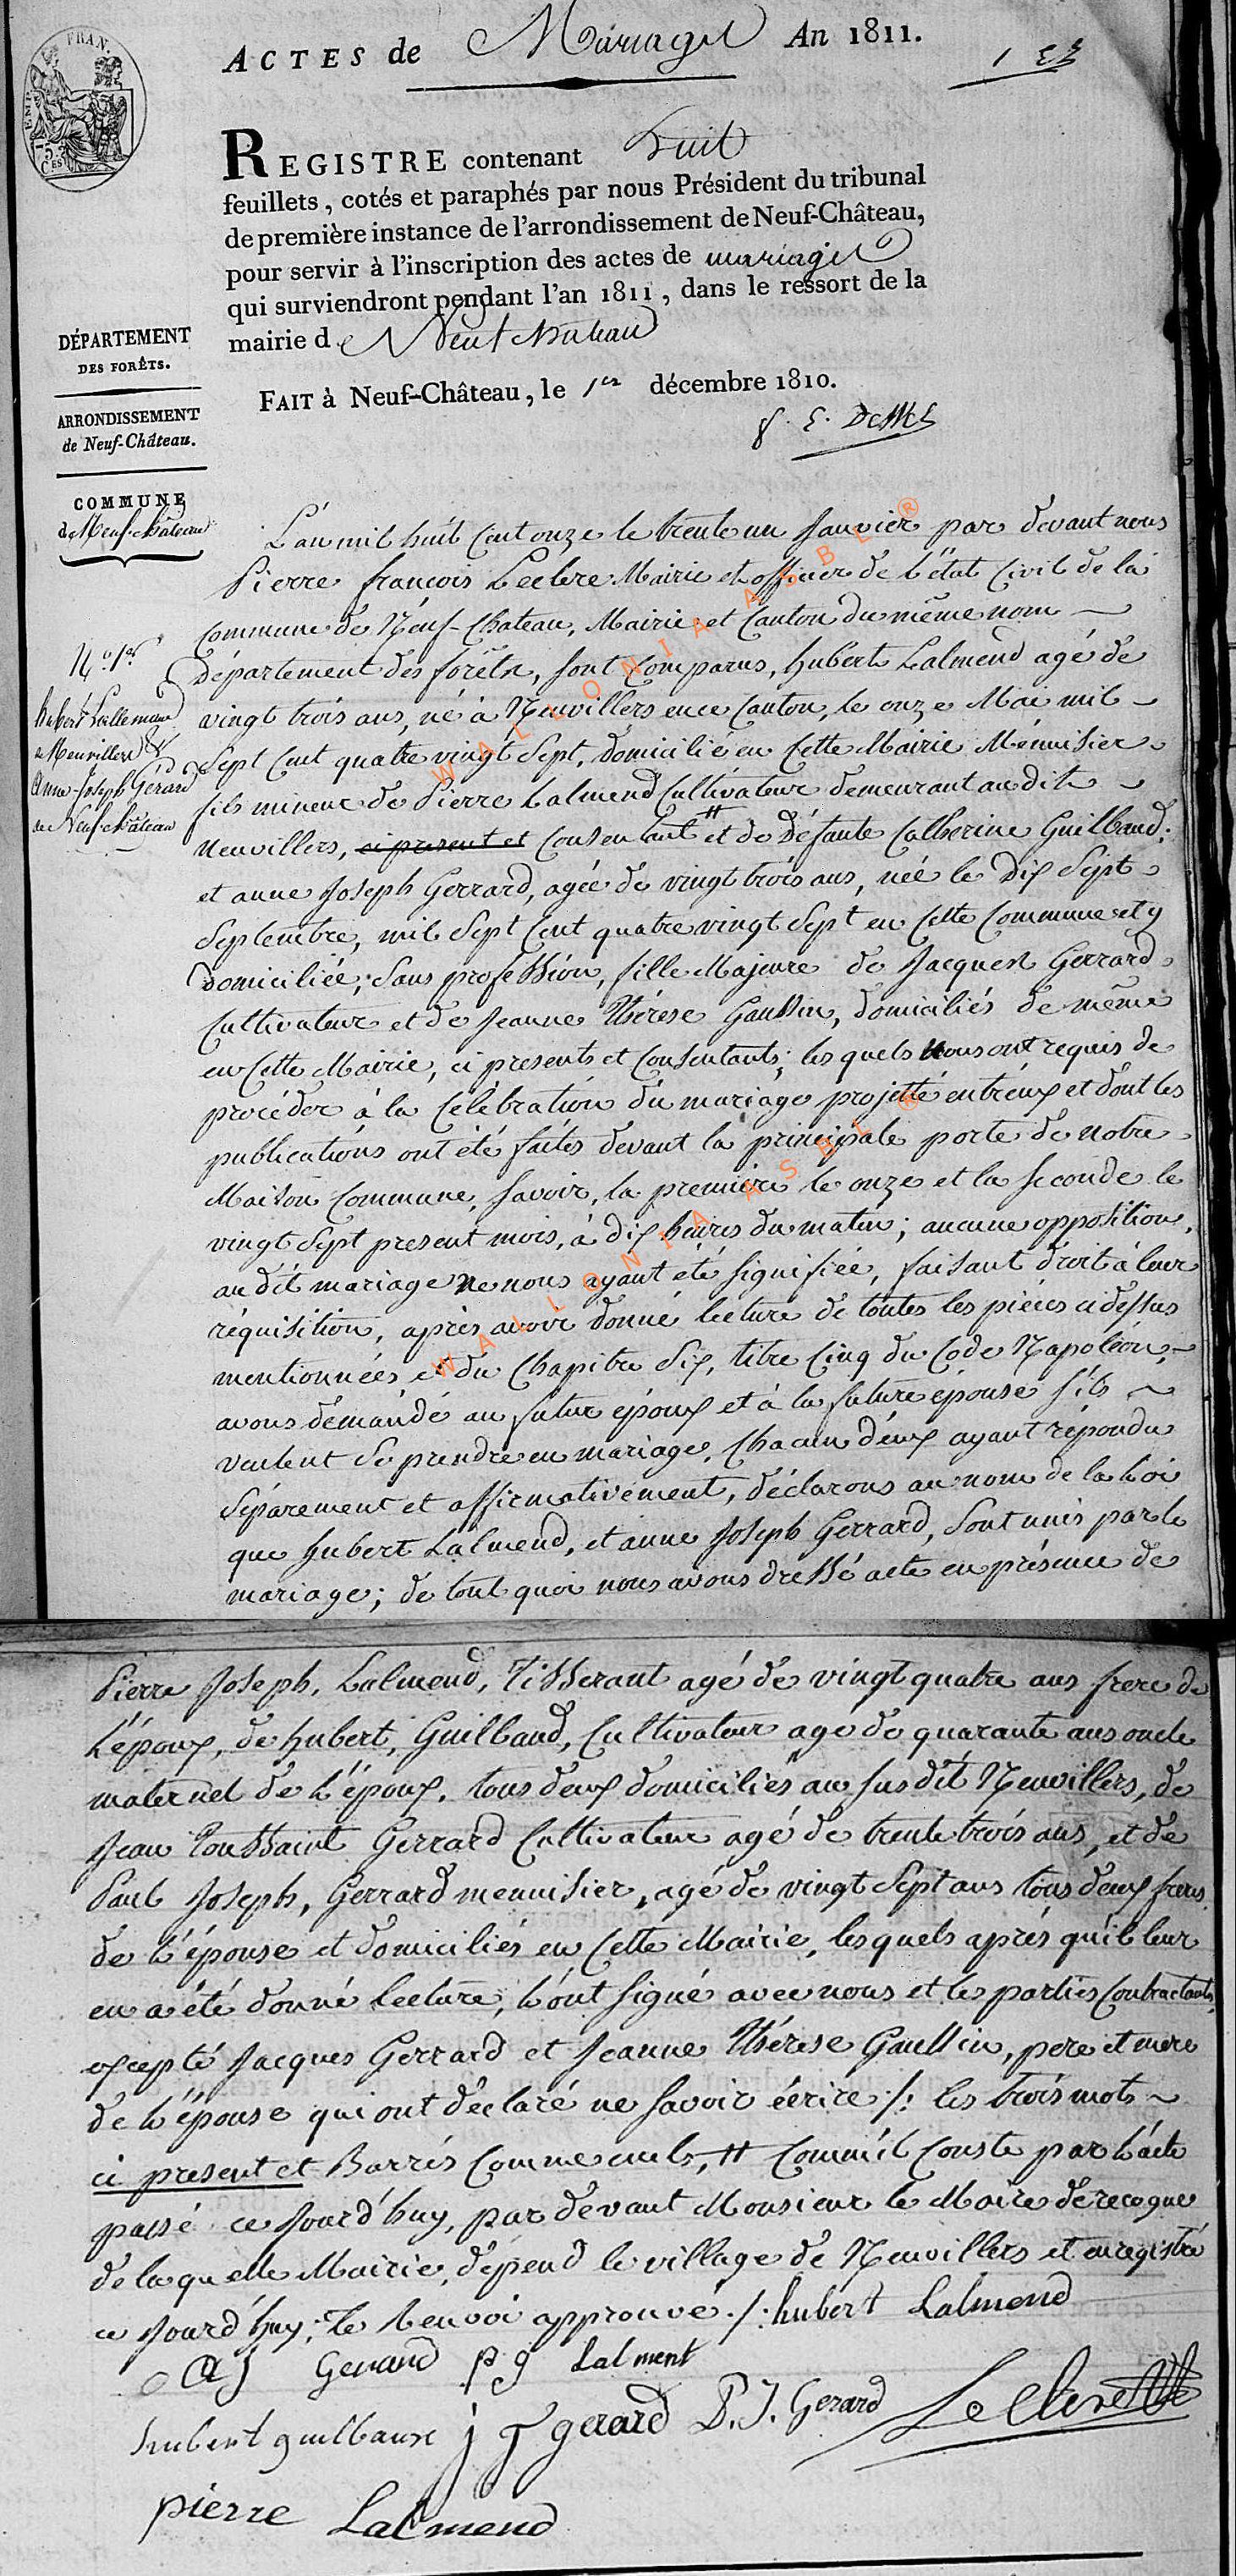 ACTES de Mariages An 1811.
1er
FRAN.
EMP.
75
CES
REGISTRE contenant huit
feuillets, cotés et paraphés par nous Président du tribunal
de première instance de l'arrondissement de Neuf-Château,
pour servir à l'inscription des actes de mariages
qui surviendront pendant l'an 1811, dans le ressort de la
mairie de Neufchateau
FAIT à Neuf-Château, le 1er décembre 1810.
DÉPARTEMENT
DES FORÊTS.
ARRONDISSEMENT
de Neuf-Château.
COMMUNE
de Neuf-château
N.o 1er
hubert Lallemand
de Neuvillers &
Anne-Joseph Gérard
de Neufchâteau
L'an mil huit Cent onze le trente un Janvier par devant nous
Pierre françois Leclere Mairie et officier de L'état Civil de la
Commune de Neuf-Chateau, Mairie et Canton du même nom
Département des forêts, sont Comparus, hubert Lalmend agé de
vingt trois ans, né à Neuvillers en ce Canton, le onze Mai mil
Sept Cent quatre vingt Sept, domicilié en Cette Mairie Menuisier
fils mineur de Pierre Lalmend Cultivateur demeurant au dit
Neuvillers, ci present et Consentant # et de Défunte Catherine Guilbaud;
et anne Joseph Gerrard, agée de vingt trois ans, née le Dix Sept
Septembre, mil Sept Cent quatre vingt Sept en Cette Commune et y
Domiciliée; Sans profession, fille Majeure de Jacques Gerrard
Cultivateur et de Jeanne Thérese Gaussin, domiciliés de même
en Cette Mairie, ci presents et Consentants; les quels nous ont requis de
procéder à la Célébration du mariage projetté entr'eux et dont les
publications ont été faites devant la principale porte de notre
Maison Commune, Savoir, la premiere le onze et la seconde le
vingt Sept present mois, à dix heures du matin; aucune opposition
au dit mariage ne nous ayant été signifiée, faisant droit à leur
réquisition, après avoir donné lecture de toutes les piéces ci dessus
mentionnées et du Chapitre Six, titre Cinq du Code Napoléon,
avons démandé au futur époux et à la future épouse s'ils
veulent Se prendre en mariage, Chacun d'eux ayant répondu
Séparement et affirmativement, déclarons au nom de la Loi
que hubert Lalmend, et anne Joseph Gerrard, Sont unis par le
mariage; de tout quoi nous avons dressé acte en présence de
Pierre Joseph, Lalmend, Tisserant agé de vingt quatre ans frere de
L'époux, de hubert, Guilbaud, Cultivateur agé de quarante ans oncle
maternel de L'époux. tous deux domiciliés au susdit Neuvillers, de
Jean Toussaint Gerrard Cultivateur agé de trente trois ans, et de
Paul Joseph, Gerrard menuisier, agé de vingt Sept ans tous deux freres
de L'épouse et domiciliés en Cette Mairie, lesquels aprés qu'il leur
en a été donné Lecture, L'ont signé avec nous et les parties Contractants,
excepté Jacques Gerrard et Jeanne Thérese Gaussin, pere et mere
de L'épouse qui ont déclaré ne savoir écrire /: les trois mots
ci present et Barrés Comme nuls, # Comm'il Conste par L'acte
passé ce Jourd'huy, par devant Monsieur le Maire de recogne
de laquelle Mairie, dépend le village de Neuvillers et enregistré
ce Jourd'huy; le Renvoi approuvé. /: hubert Lalmend
A J Gerard p g Lalment
hubert guilbaux j T gerard P. J. Gerard Leclere
pierre Lalmend
WALLONIA ASBL ®
WALLONIA ASBL ®